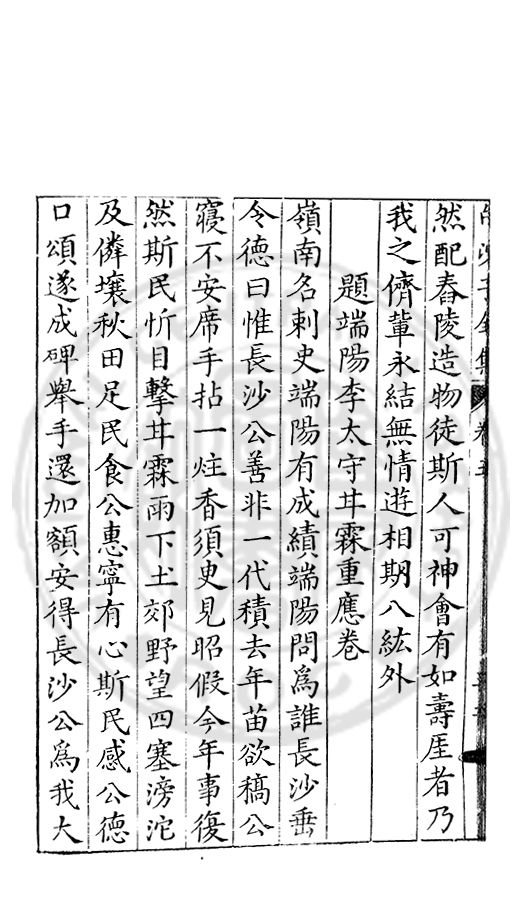 然配舂陵造物徒斯人可神會有如壽厓者乃
我之儕輩永結無情遊相期八紘外
題端陽李太守甘霖重應卷
嶺南名刺史端陽有成績端陽問為誰長沙垂
令德曰惟長沙公善非一代積去年苗欲稿公
寢不安席手拈一炷香須臾見昭假今年事復
然斯民忻目擊甘霖雨下土郊野望四塞滂沱
及鄰壤秋田足民食公惠寧有心斯民感公德
口頌遂成碑舉手還加額安得長沙公為我大